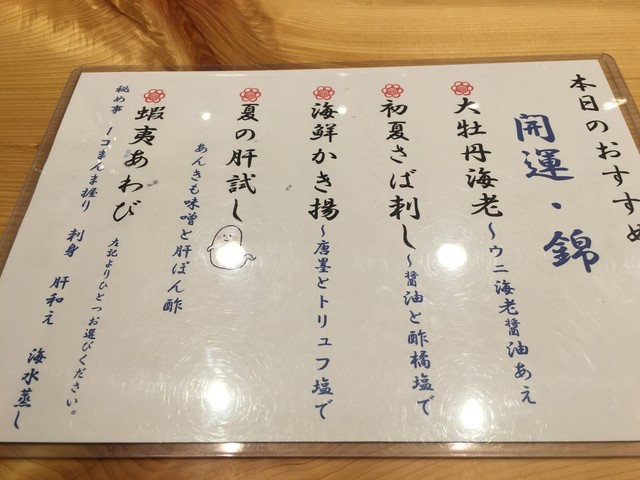 本日のおすすめ
開運・錦
大牡丹海老～ウニ海老醤油あえ
初夏さば刺し～醤油と酢橘塩で
海鮮かき揚～唐墨とトリュフ塩で
夏の肝試し
あんきも味噌と肝ぽん酢
蝦夷あわび
左記よりひとつお選びください。
秘め事 一コまんま握り 刺身 肝和え 海水蒸し